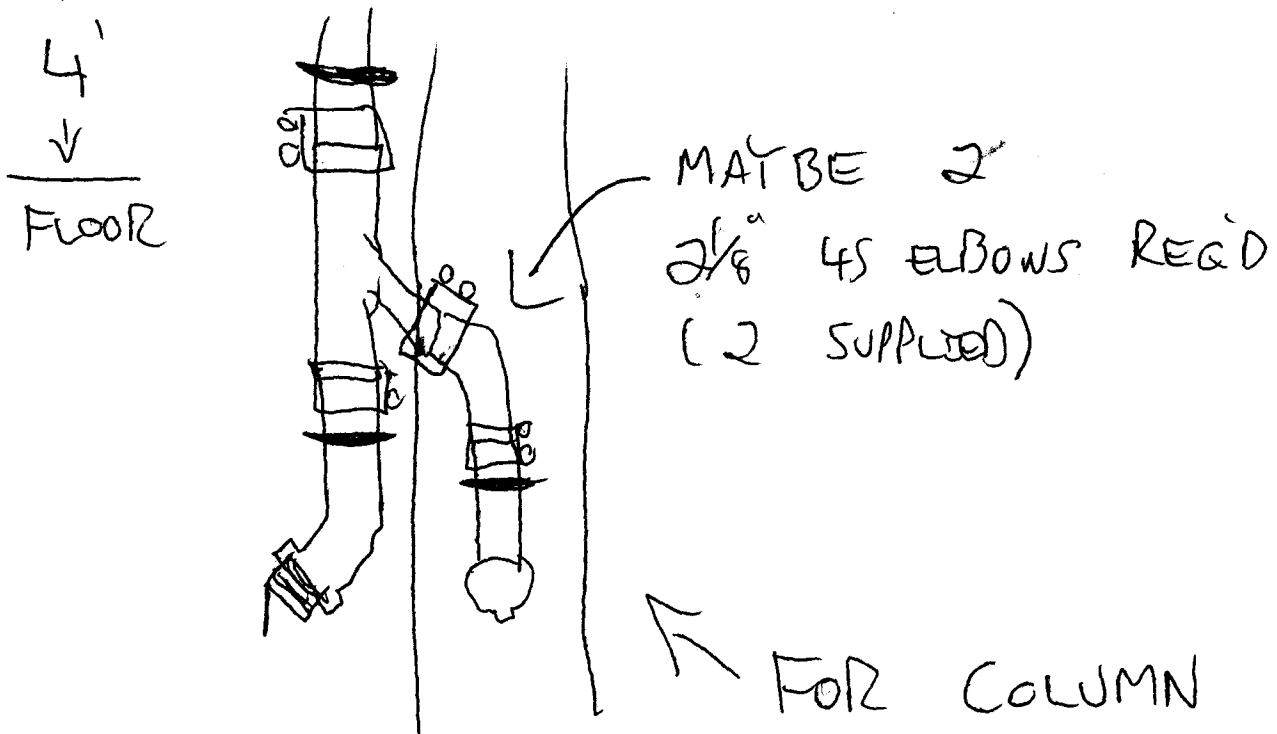 4'
FLOOR
MAYBE 2
2 1/8" 45 ELBOWS REQ'D
(2 SUPPLIED)
FOR COLUMN